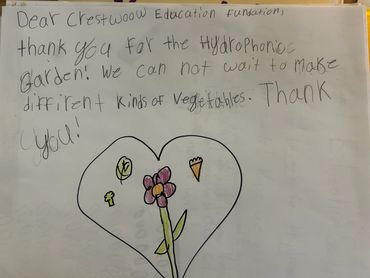 Dear Crestwoow Education Fundation,
thank you for the Hydrophonics
garden! We can not wait to make
diffirent kinds of vegetables. Thank
you!